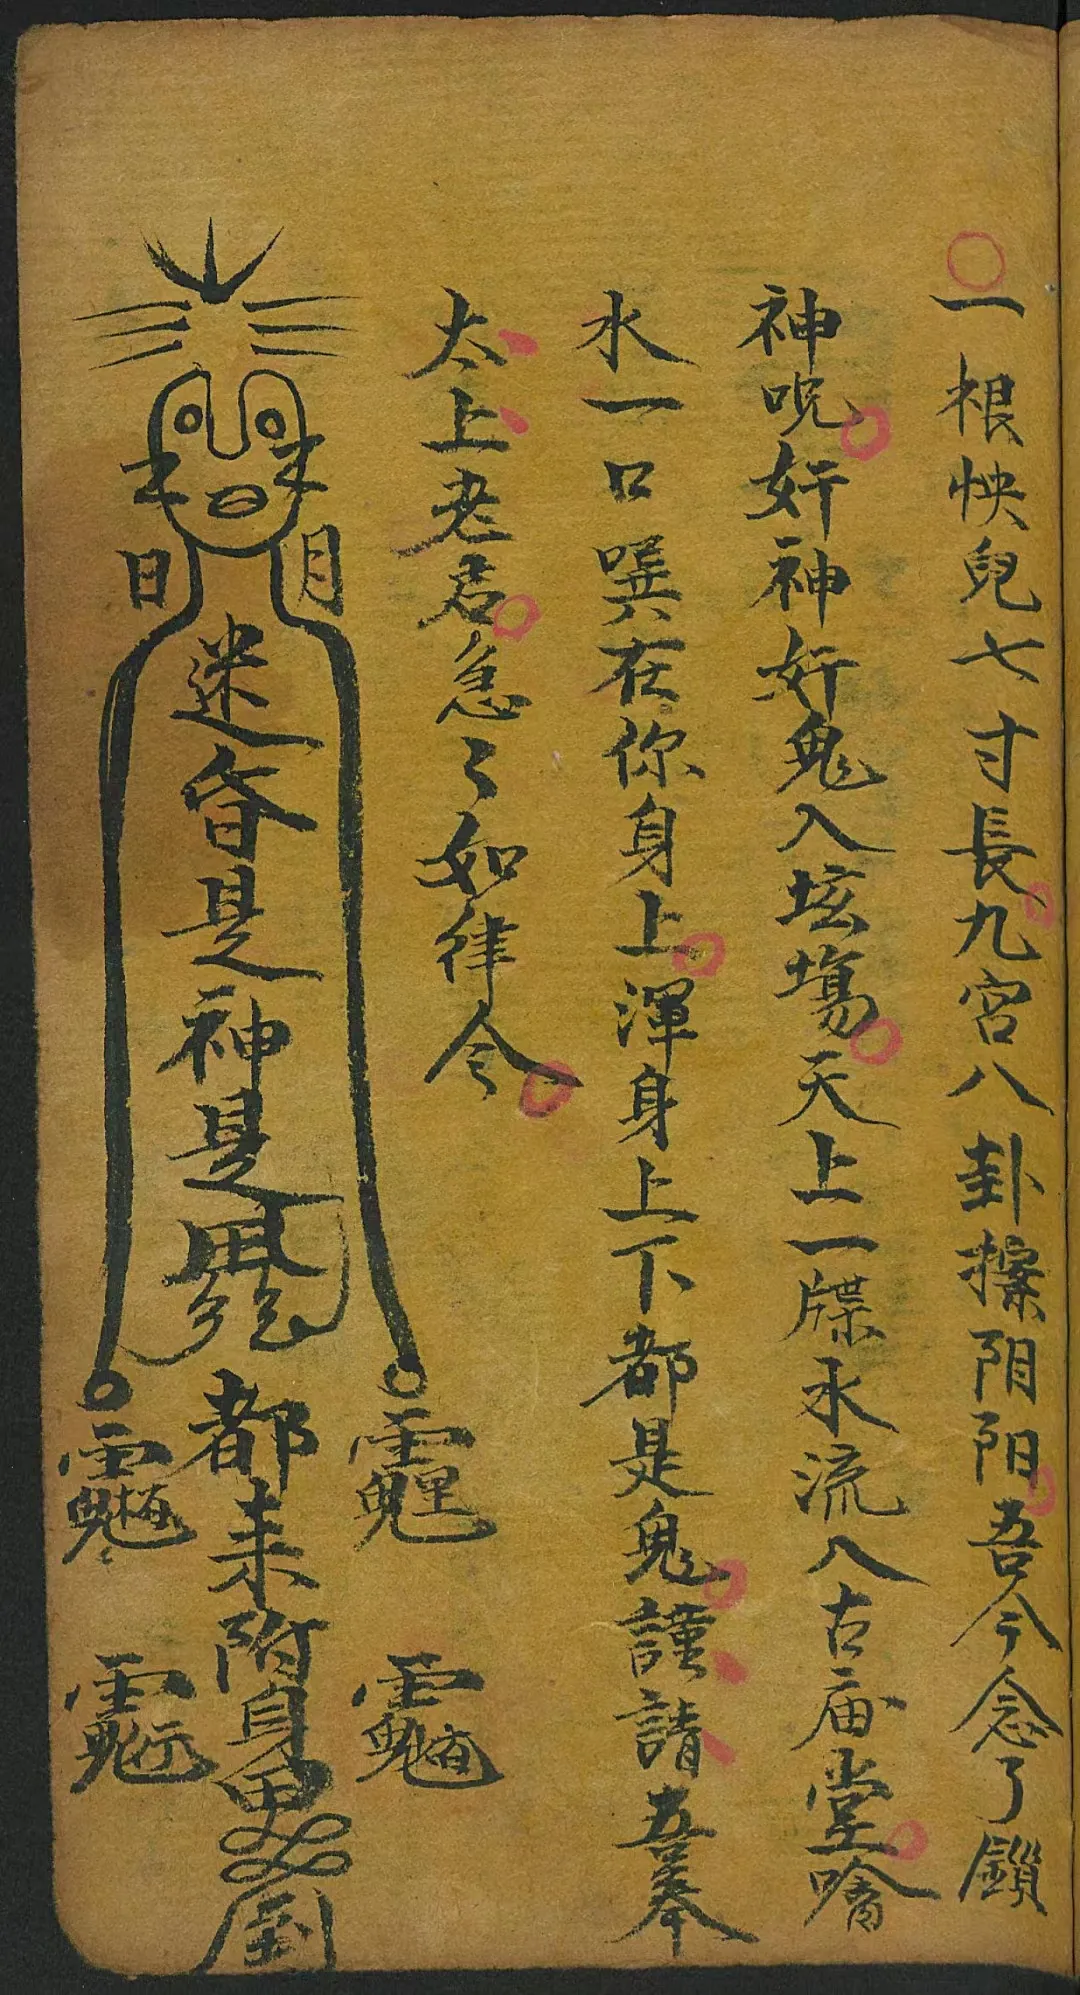 一根怏兒七寸長九宮八卦擦阴阳吾今念了鎖
神呪奸神奸鬼入坛塲天上一牒水流入古庙堂
水一口噀在你身上渾身上下都是鬼謹請吾奉
太上老君急〻如律令
日
月
迷昏是神是
都来附身
倒